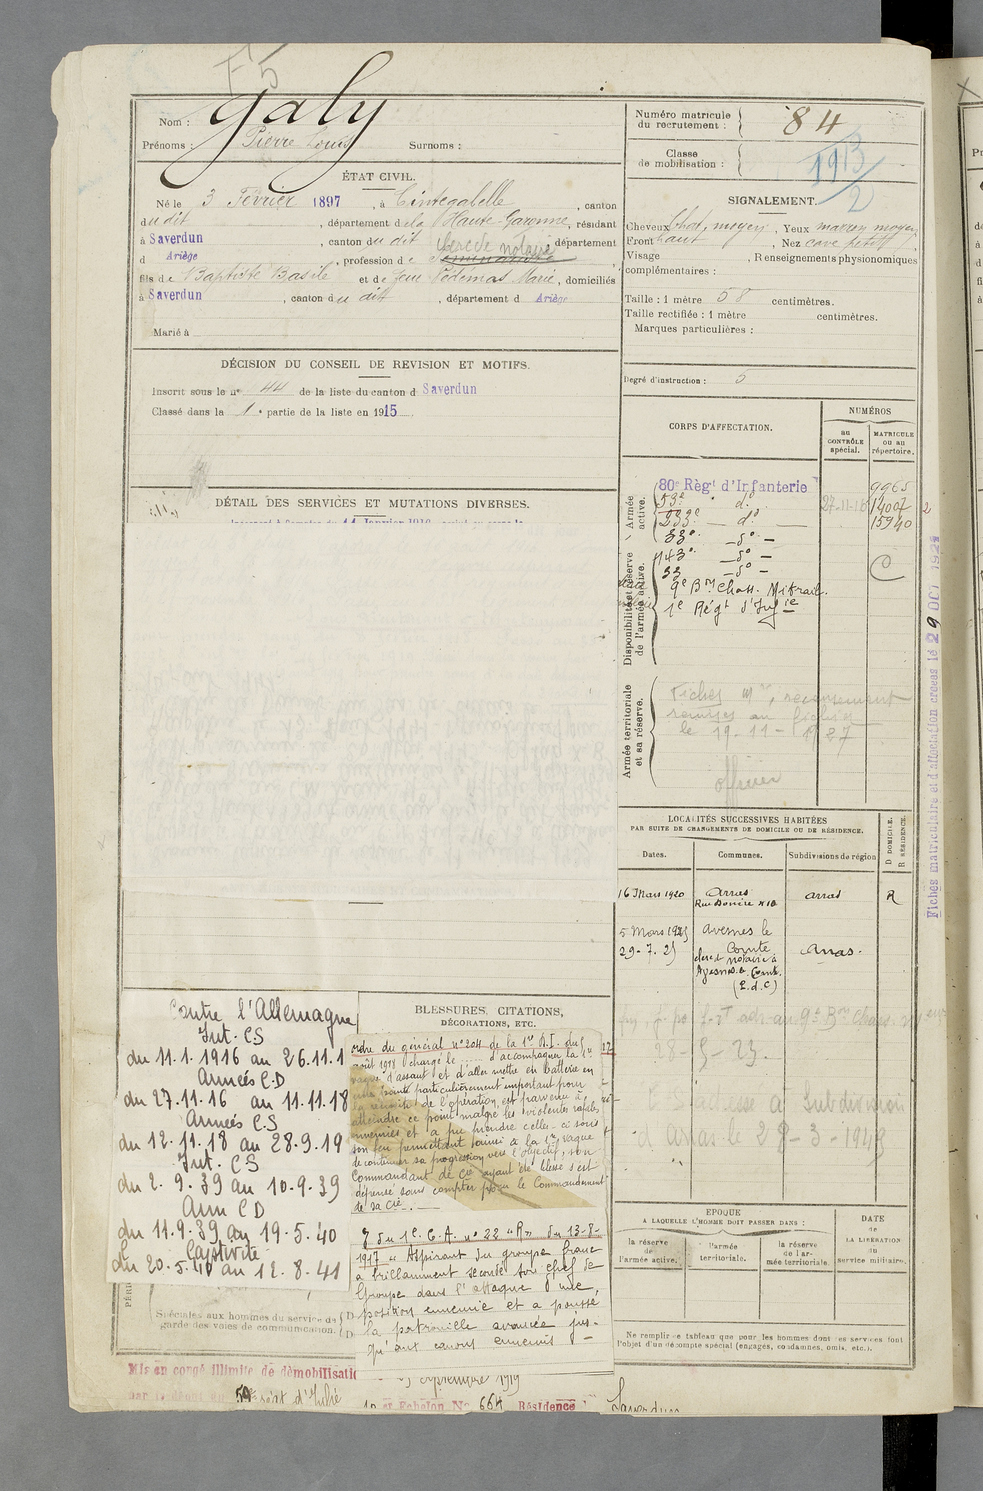 F5
Galy
Nom :
Prénoms : Pierre Louis Surnoms :
ÉTAT CIVIL.
Né le 3 Février 1897, à Cintegabelle, canton
du dit, département de la Haute-Garonne, résidant
à Saverdun, canton du dit, département
d Ariège, profession de Séminariste Clerc de notaire
fils de Baptiste Basile et de feue Pédemas Marie, domiciliés
à Saverdun, canton du dit, département d Ariège
Marié à
DÉCISION DU CONSEIL DE REVISION ET MOTIFS.
Inscrit sous le no 44 de la liste du canton d Saverdun
Classé dans la 1e partie de la liste en 1915
DÉTAIL DES SERVICES ET MUTATIONS DIVERSES.
Contre l'Allemagne
Int. CS
du 11.1.1916 au 26.11.1
Armées C.D
du 27.11.16 au 11.11.18
Armées C.S
du 12.11.18 au 28.9.19
Int. CS
du 2.9.39 au 10.9.39
Arm C D
du 11.9.39 au 19.5.40
Captivité
du 20.5.40 au 12.8.41
Spéciales aux hommes du service de
garde des voies de communication.
BLESSURES, CITATIONS,
DÉCORATIONS, ETC.
ordre du général no 204 de la 1re D.I. du 5
août 1918 chargé le ...... d'accompagner la 1re
vague d'assaut et d'aller mettre en batterie en
un point particulièrement important pour
la réussite de l'opération, est parvenu à
atteindre ce point malgré les violentes rafales
ennemies et a pu prendre celles-ci sous
son feu permettant ainsi à la 1re vague
de continuer sa progression vers l'objectif, son
Commandant de Cie ayant été blessé s'est
dépensé sans compter pour le Commandement
de sa Cie.
O du 1e C.A. no 22 "R" du 13-8-
1917 " Aspirant du groupe franc
a brillamment secondé son chef de
Groupe dans l'attaque d'une
position ennemie et a poussé
la patrouille avancée jus-
qu'aux canons ennemis
Mis en congé illimité de démobilisation
septembre 1919
par le dépôt du 59e Régt d'Infie
Echelon No 664 Résidence Saverdun
Numéro matricule
du recrutement : 84
Classe
de mobilisation : 1913/2
SIGNALEMENT.
Cheveux chat. moyen, Yeux marron moyen
Front haut, Nez cave petit
Visage , Renseignements physionomiques
complémentaires :
Taille : 1 mètre 58 centimètres.
Taille rectifiée : 1 mètre centimètres.
Marques particulières :
Degré d'instruction : 5
CORPS D'AFFECTATION.
NUMÉROS
au
CONTRÔLE
spécial.
MATRICULE
ou au
répertoire.
Armée
active.
80e Régt d'Infanterie 9965
53e do 27-11-16 14007
233e do 15940
33e - do -
Disponibilité et réserve
de l'armée active.
43e - do -
33 - do -
9e Bon Chass. Mitrail.
1e Régt d'Infie
C
Armée territoriale
et sa réserve.
Fiches Mle, recensement
remises au fichier
le 19-11-1927
officier
LOCALITÉS SUCCESSIVES HABITÉES
PAR SUITE DE CHANGEMENTS DE DOMICILE OU DE RÉSIDENCE.
Dates. Communes. Subdivisions de région
D DOMICILE.
R RÉSIDENCE.
16 Mars 1920 Arras Arras R
5 Mars 1925 Avesnes le
29-7.25 Comte Arras.
clerc de notaire à
Avesnes le Comte.
(P.d.C)
28-5-23.
d'Arras le
EPOQUE
A LAQUELLE L'HOMME DOIT PASSER DANS :
la réserve
de
l'armée active.
l'armée
territoriale.
la réserve
de l'ar-
mée territoriale.
DATE
de
LA LIBÉRATION
du
service militaire.
Ne remplir ce tableau que pour les hommes dont les services font
l'objet d'un décompte spécial (engagés, condamnés, omis, etc.).
Fiches matriculaire et d'affectation créées le 29 OCT 1921